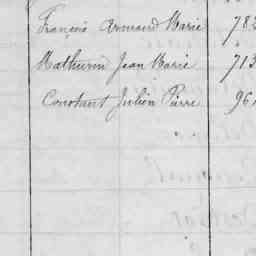 François Armand Marie 782
Mathurin Jean Marie 713
Constant Julien Pierre 96